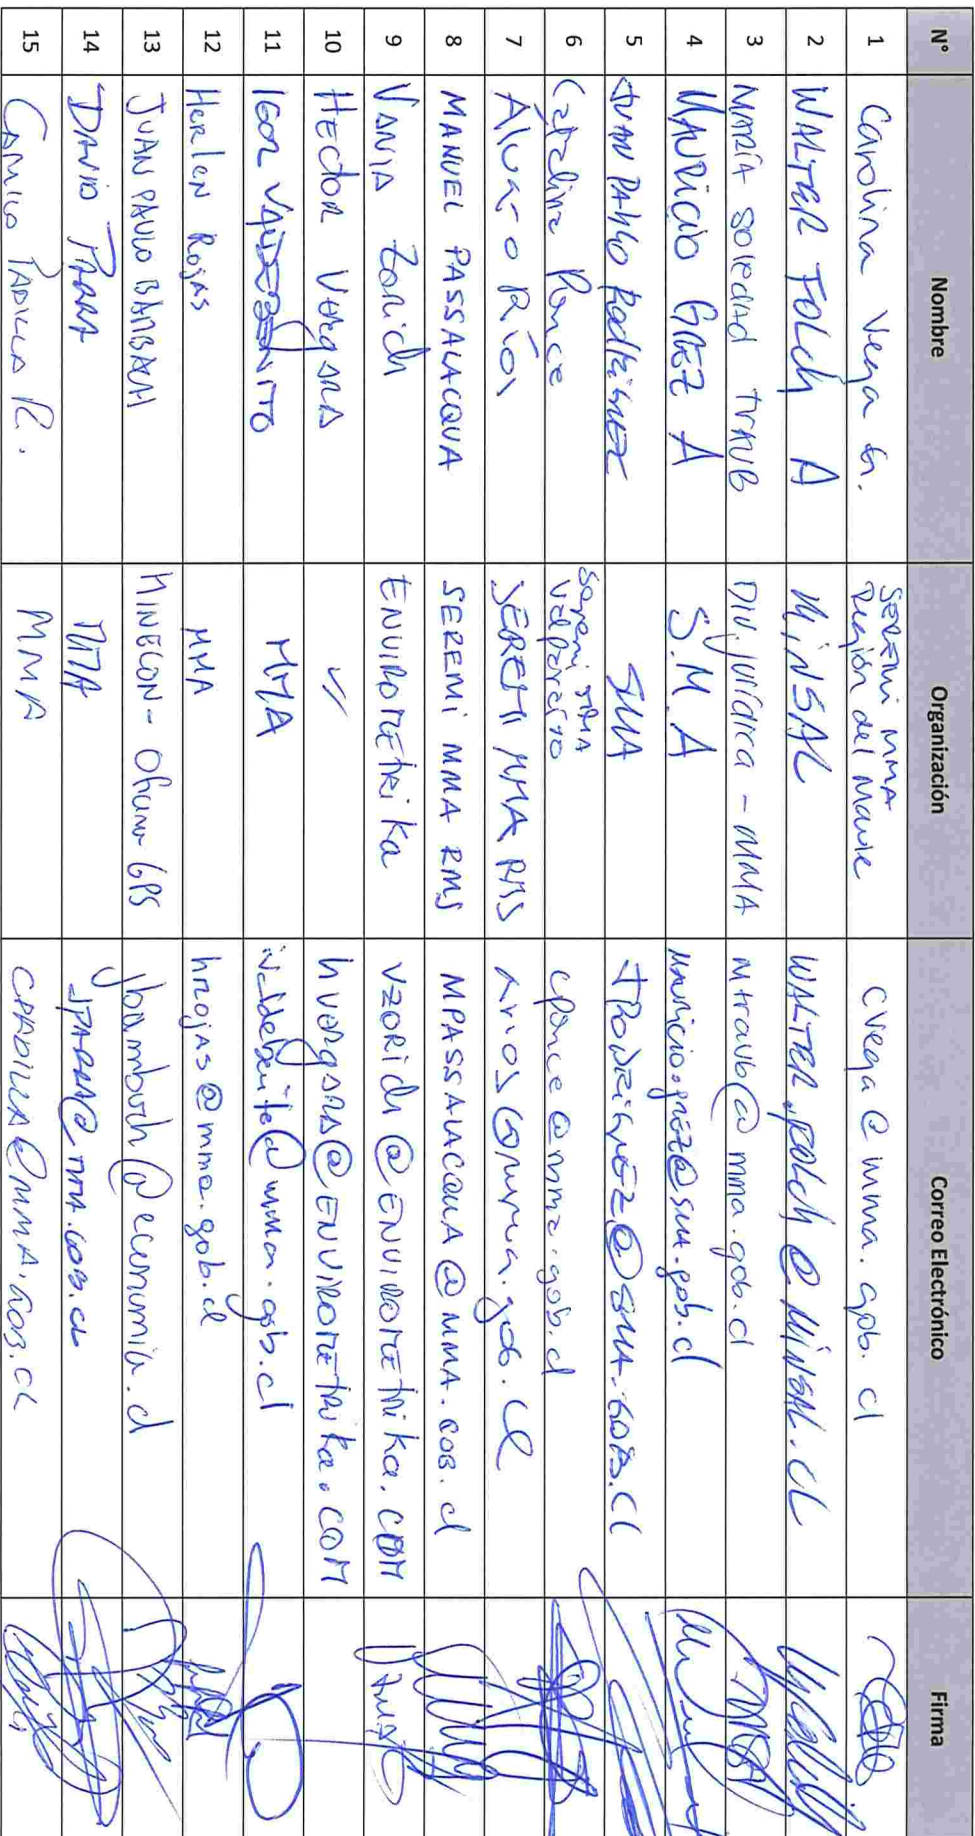 N° Nombre Organización Correo Electrónico Firma
1 Carolina Vega G. SEREMI MMA Región del Maule cvega@mma.gob.cl
2 WALTER FOLCH A MINSAL WALTER.FOLCH@MINSAL.CL
3 MARÍA SOLEDAD TRAUB DIV. jurídica - MMA mtraub@mma.gob.cl
4 MAURICIO GREZ A S.M.A mauricio.grez@sma.gob.cl
5 JUAN PABLO RODRIGUEZ SMA JPRODRIGUEZ@SMA.GOB.CL
6 Catalina Ponce Seremi MMA Valparaíso cponce@mma.gob.cl
7 Álvaro Ríos SEREMI MMA RMS arios@mma.gob.cl
8 MANUEL PASSALACQUA SEREMI MMA RMS MPASSALACQUA@MMA.GOB.cl
9 VANIA Zorich ENVIROMETRIKA VZORICh@ENVIROMETRIKA.COM
10 HECTOR VERGARA hvergara@ENVIROMETRIKA.COM
11 IGOR VALDEBENITO MMA ivaldebenito@mma.gob.cl
12 Herlen Rojas MMA hrojas@mma.gob.cl
13 JUAN PAULO BAMBACH MINECON - GPS jbambach@economia.cl
14 DAVID PARRA MMA DPARRA@MMA.GOB.CL
15 CAMILO PADILLA R. MMA CPADILLA@MMA.GOB.CL